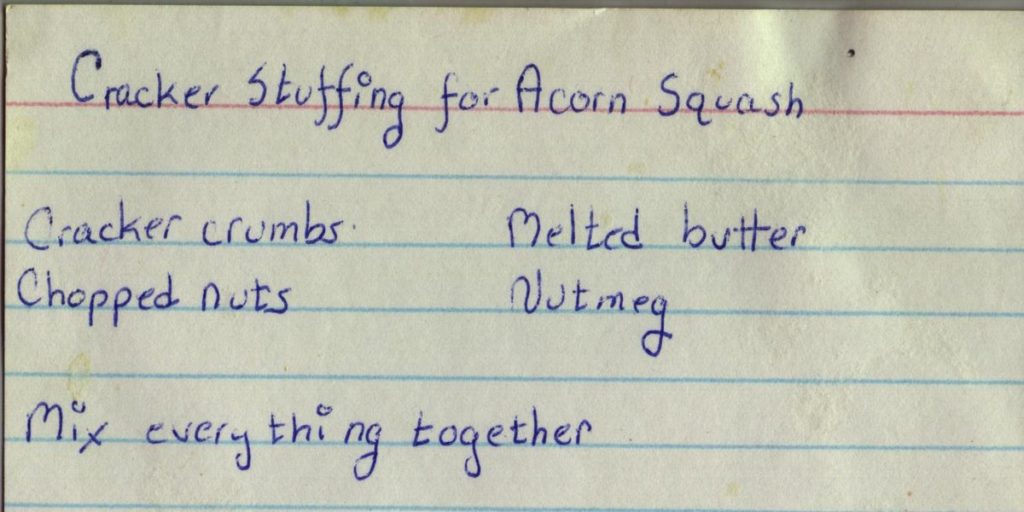 Cracker Stuffing for Acorn Squash
Cracker crumbs Melted butter
Chopped nuts Nutmeg
Mix everything together